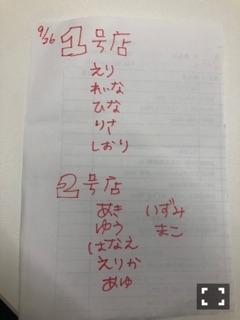 9/26
1号店
えり
れいな
ひな
りさ
しおり
2号店
あき いずみ
ゆう まこ
はなえ
えりか
あゆ